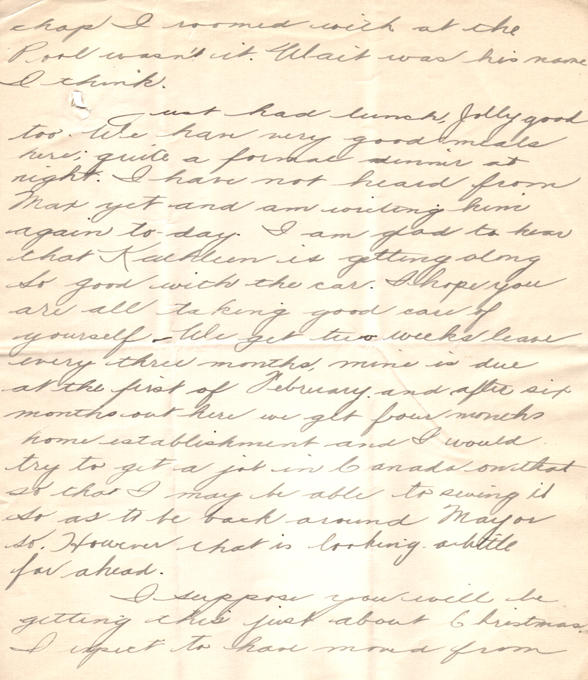 chap I roomed with at the
Pool wasn't it. Wait was his name
I think.
Just had lunch, Jolly good
too. We han very good meals
here; quite a formal dinnir at
night. I have not heard from
Max yet and am writing him
again to-day. I am glad to hear
that Kathleen is getting along
so good with the car. I hope you
are all taking good care of
yourself - We get two weeks leave
every three months, mine is due
at the first of February and after six
months out here we get four months
home establishment and I would
try to get a job in Canada on that
so that I may be able to swing it
so as to be back around May or
so. However that is looking a little
far ahead.
I suppose you will be
getting this just about Christmas.
I expect to have moved from